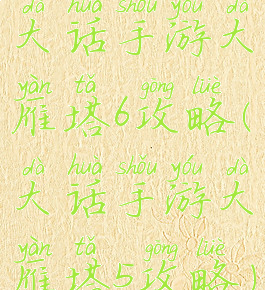 dà huà shǒu yóu dà
大话手游大
yàn tǎ gōng lüè
雁塔6攻略(
dà huà shǒu yóu dà
大话手游大
yàn tǎ gōng lüè
雁塔5攻略)